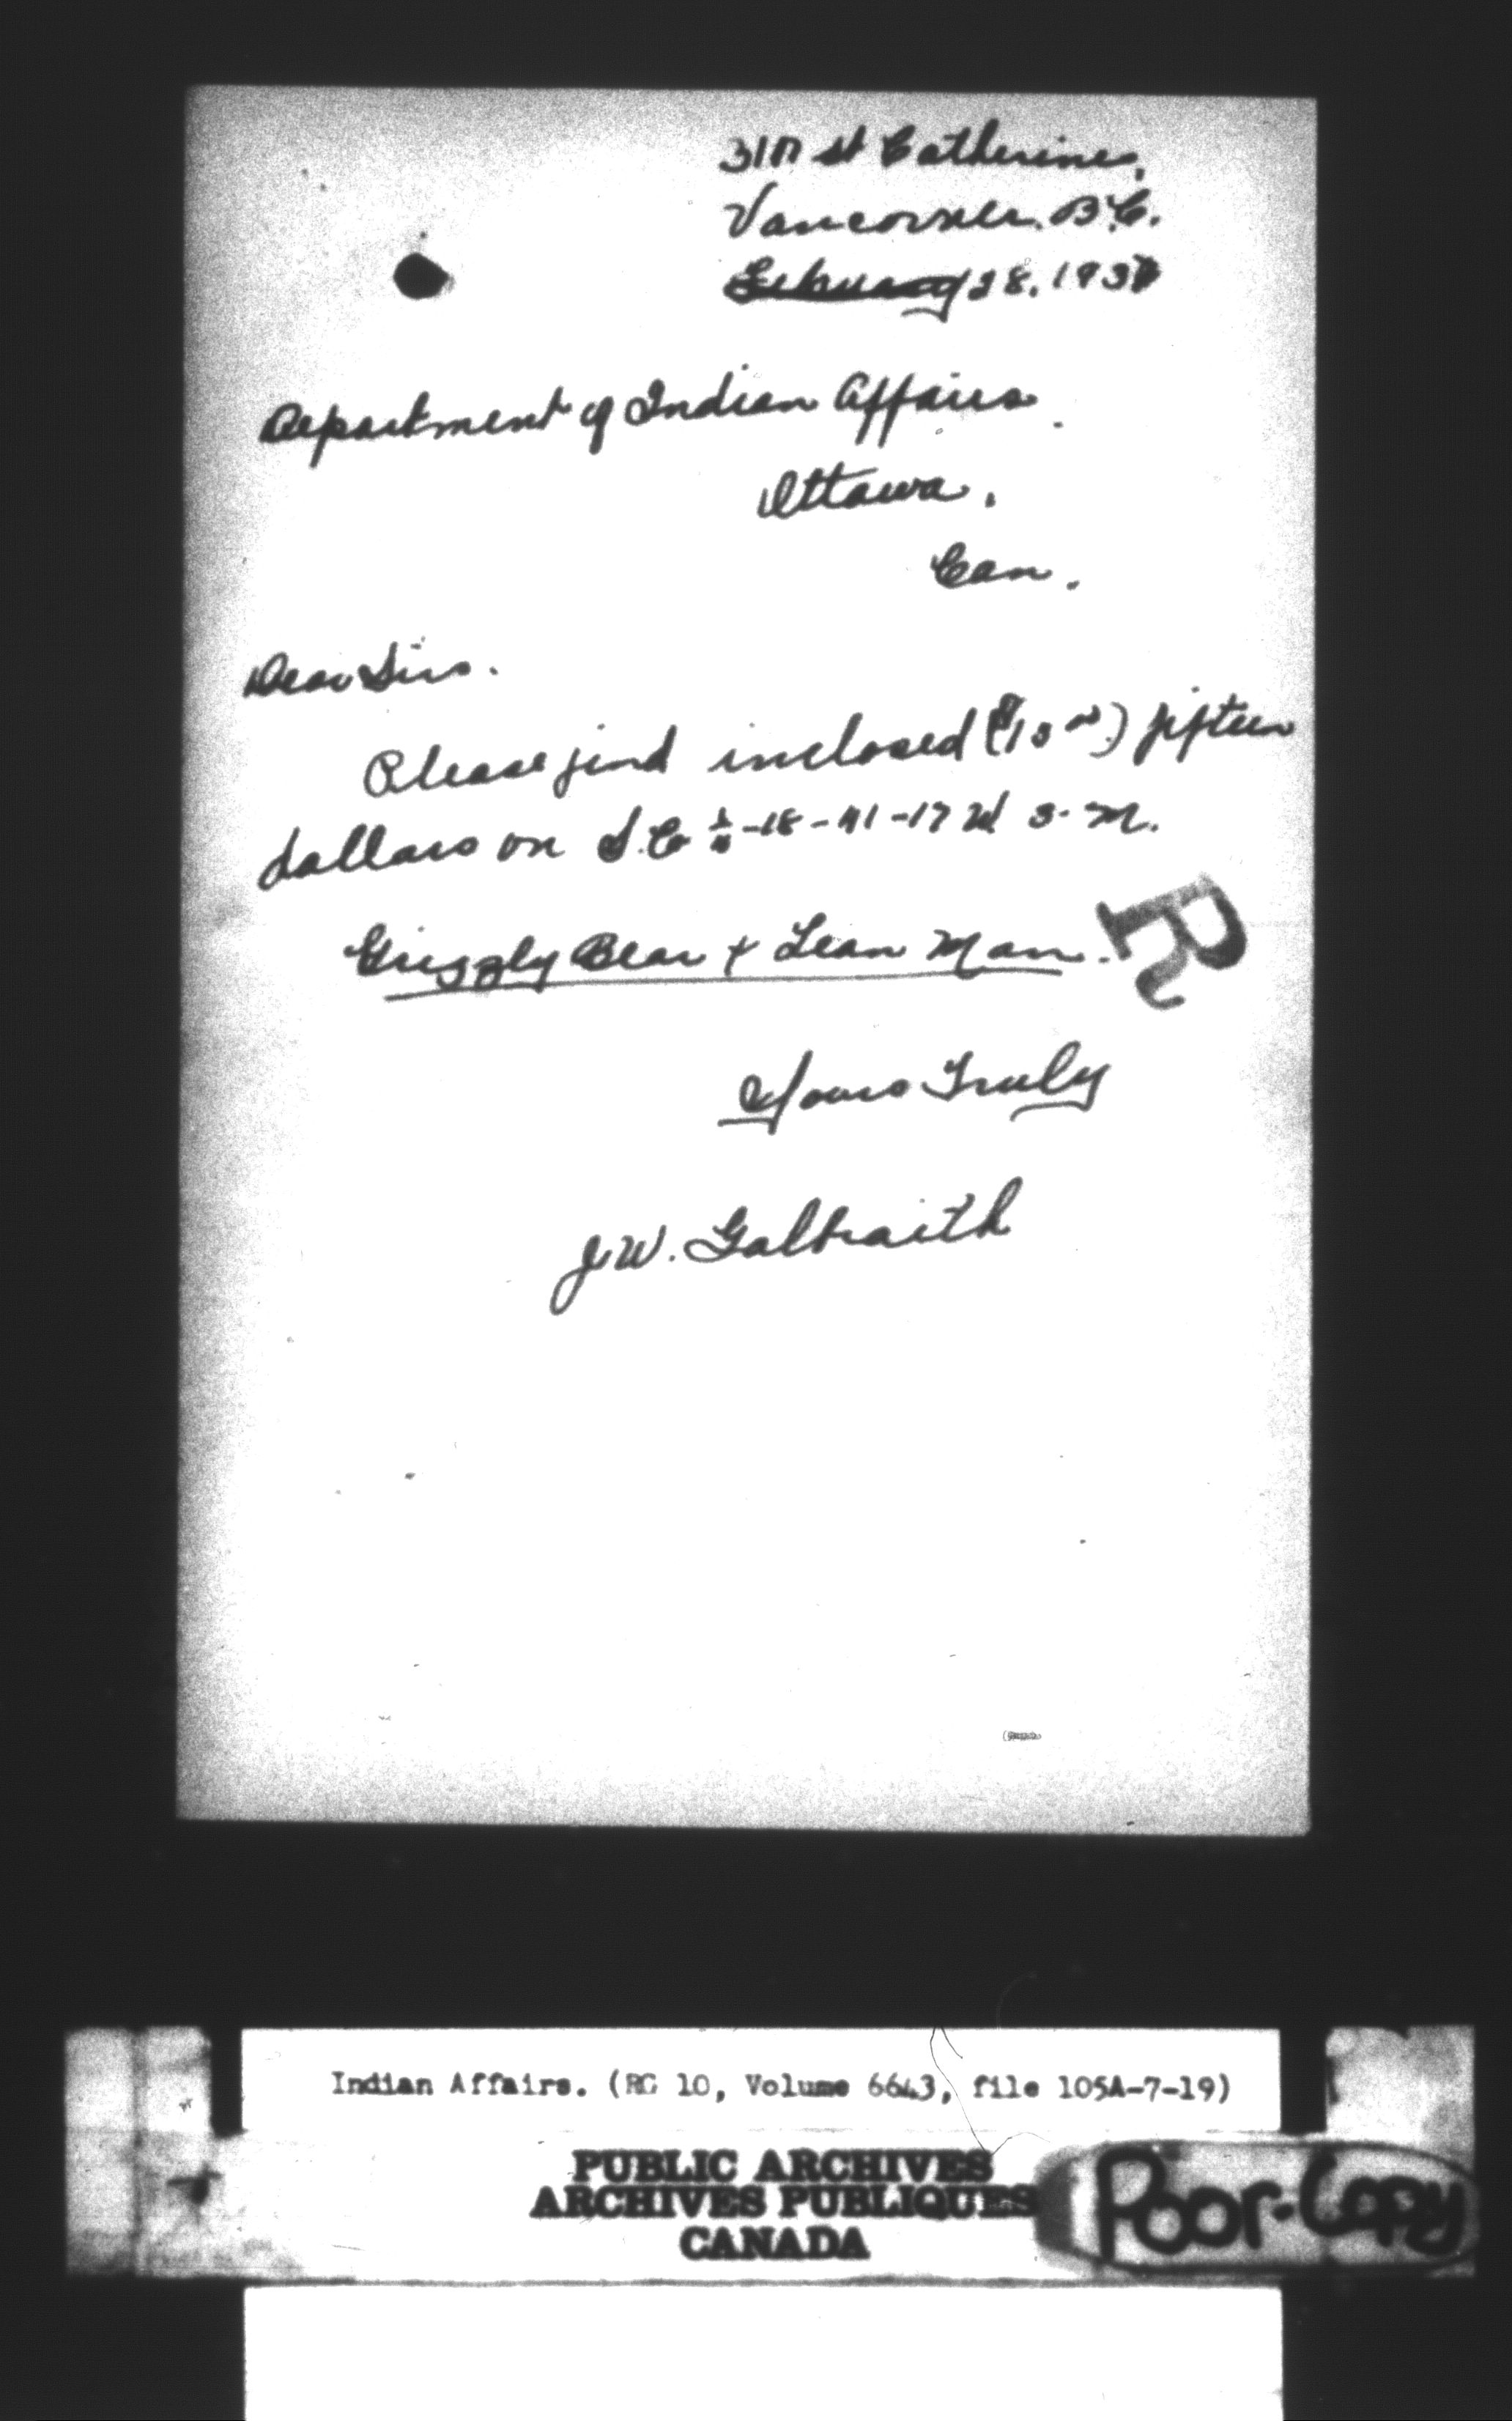 St Catherines,
Vancouver. B.C.
February 28. 193
Department of Indian Affairs.
Ottawa.
Can.
Dear Sirs.
Please find inclosed ($15 00) fifteen
dollars on S.E 1/4-18-41-17 W 3. M.
Grizzly Bear & Lean Man.
R
Yours Truly
J.W. Galbraith
Indian Affairs. (RG 10, Volume 6643, file 105A-7-19)
PUBLIC ARCHIVES
ARCHIVES PUBLIQUES
CANADA
Poor-Copy